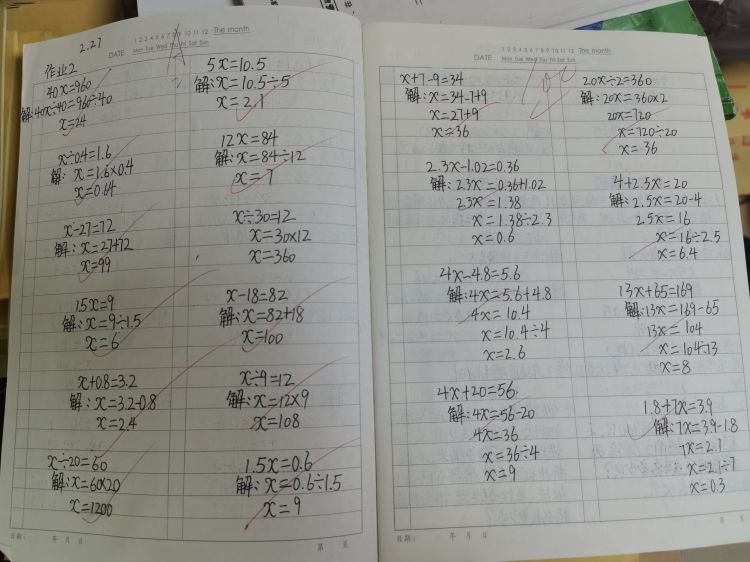 2.27
DATE
1 2 3 4 5 6 7 8 9 10 11 12 The month
Mon Tue Wed Thu Fri Sat Sun
作业2
40x=960
解:40x÷40=960÷40
x=24
x÷0.4=1.6
解: x=1.6×0.4
x=0.64
x-27=72
解: x=27+72
x=99
1.5x=9
解: x=9÷1.5
x=6
x+0.8=3.2
解: x=3.2-0.8
x=2.4
x÷20=60
解: x=60×20
x=1200
5x=10.5
解:x=10.5÷5
x=2.1
12x=84
解: x=84÷12
x=7
x÷30=12
x=30×12
x=360
x-18=82
解:x=82+18
x=100
x÷9=12
解: x=12×9
x=108
1.5x=0.6
解:x=0.6÷1.5
x=9
日期: 年 月 日
第 页
DATE
1 2 3 4 5 6 7 8 9 10 11 12 The month
Mon Tue Wed Thu Fri Sat Sun
100
x+7-9=34
解: x=34-7+9
x=27+9
x=36
2.3x-1.02=0.36
解: 2.3x=0.36+1.02
2.3x=1.38
x=1.38÷2.3
x=0.6
4x-4.8=5.6
解:4x=5.6+4.8
4x=10.4
x=10.4÷4
x=2.6
4x+20=56
解:4x=56-20
4x=36
x=36÷4
x=9
20x÷2=360
解: 20x=360×2
20x=720
x=720÷20
x=36
4+2.5x=20
解: 2.5x=20-4
2.5x=16
x=16÷2.5
x=6.4
13x+65=169
解:13x=169-65
13x=104
x=104÷13
x=8
1.8+7x=3.9
解: 7x=3.9-1.8
7x=2.1
x=2.1÷7
x=0.3
日期: 年 月 日
第 页